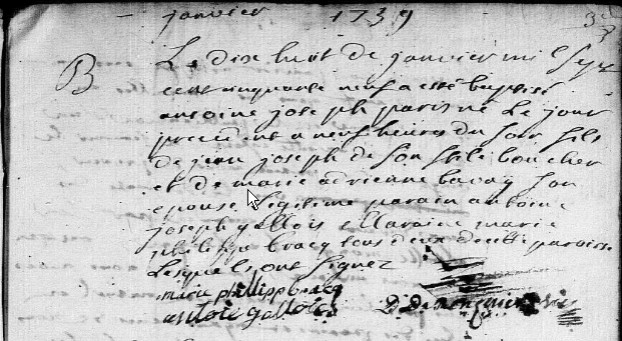 janvier 1759
B
Le dix huit de janvier mil sept
cent cinquante neuf a esté baptisé
antoine joseph paris né Le jour
precedent a neuf heures du soir fils
de jean joseph de son stile boucher
et de marie adrienne bavay son
epouse Legitime parain antoine
joseph gallois Maraine marie
philippe bracq tous deux de cette paroisse
Lesquels ont signez
marie philipp bracq
gallois